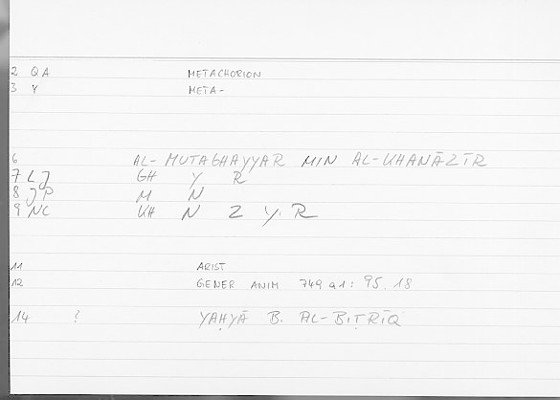 2 QA METACHORION
3 Y META-
6 AL-MUTAGHAYYAR MIN AL-KHANĀZĪR
7 LJ GH Y R
8 JP M N
9 NC KH N Z Y R
11 ARIST
12 GENER ANIM 749 a1: 95.18
14 ? YAḤYĀ B. AL-BIṬRĪQ